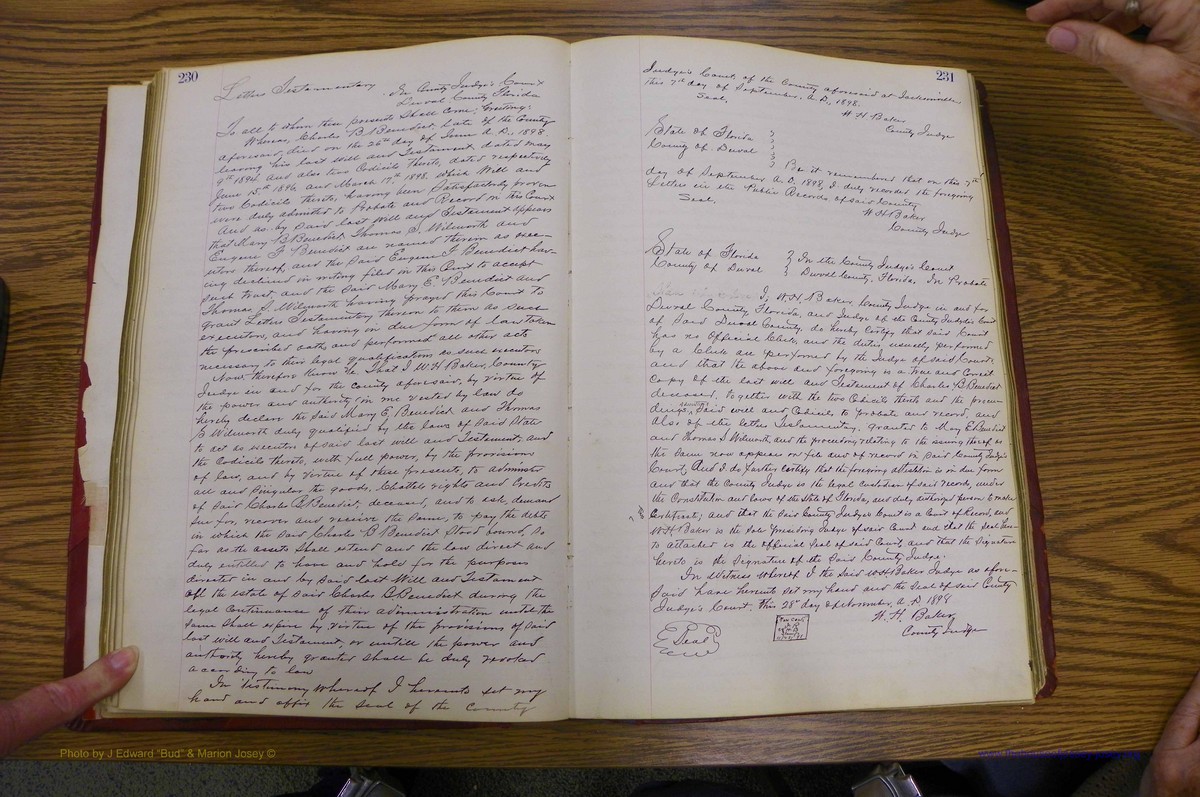 230
Letters Testamentary. In County Judge's Court
Duval County Florida
To all to whom these presents Shall come, Greeting:
Whereas, Charles B. Benedict, late of the County
aforesaid, died on the 26th day of June A. D., 1898.
leaving his last Will and Testament dated May
9th 1894 and also two Codicils thereto, dated respectively
June 15th 1896, and March 17th 1898. which Will and
two Codicils thereto, having been Satisfactorily proven
were duly admitted to Probate and Record in this Court
And as by said last Will and Testament appears
that Mary B Benedict, Thomas S. Wilmorth and
Eugene F Benedict are named therein as exec-
utors thereof, and the Said Eugene F Benedict hav-
ing declined in writing filed in this Court to accept
such trust, and the Said Mary E Benedict and
Thomas S. Wilmorth having prayed this Court to
grant Letters Testamentary thereon to them as such
executors, and having in due form of law taken
the prescribed oath, and performed all other acts
necessary to their legal qualifications as such executors
Now, therefore Know Ye That I W. H Baker, County
Judge in and for the County aforesaid, by virtue of
the power and authority in me vested by law do
hereby declare the Said Mary E. Benedict and Thomas
S Wilmorth duly qualified by the laws of Said State
to act as executors of said last will and Testament, and
the Codicils thereto, with full power, by the provisions
of law, and by virtue of these presents, to administer
all and Singular the goods, Chattels rights and Credits
of Said Charles B Benedict, deceased, and to ask, demand
sue for, recover and receive the same, to pay the debts
in which the Said Charles B Benedict Stood bound, so
far as the assets shall extend and the law direct and
duly entitled to have and hold for the purposes
directed in and by said last Will and Testament
all the estate of Said Charles B Benedict during the
legal Continuance of their administration until the
same shall expire by virtue of the provisions of Said
last will and Testament, or untill the power and
authority hereby granted shall be duly revoked
according to law
In testimony whereof I hereunto set my
hand and affix the Seal of the County
231
Judge's Court, of the County aforesaid at Jacksonville
this 7th day of September, A. D., 1898.
Seal,
W H Baker
County Judge
State of Florida
County of Duval
Be it remembered that on this 7th
day of September A. D, 1898, I duly recorded the foregoing
Letters in the Public Records of said County
Seal,
W H Baker
County Judge
State of Florida } In the County Judge's Court
County of Duval } Duval County, Florida. In Probate
I, W. H. Baker, County Judge in and for
Duval County, Florida, and Judge of the County Judge's Court
of Said Duval County, do hereby certify, that said Court
has no Official Clerk, and the duties usually performed
by a Clerk are performed by the Judge of said Court;
and that the above and foregoing is a true and Correct
Copy of the last will and Testament of Charles B Benedict
deceased, together with the two Codicils thereto and the procee-
dings, Said will and Codicils to probate and record, and
also of the letters Testamentary, granted to Mary E Benedict
and Thomas S Wilmorth, and the proceedings relating to the issuing thereof as
the Same now appears on file and of record in Said County Judge's
Court, And I do further Certify, that the foregoing attestation is in due form
and that the County Judge is the legal custodian of said records, under
the Constitution and laws of the State of Florida, and duly authorized person to make
Certificate; and that the Said County Judge's Court is a Court of Record, and
W H Baker is the Sole Presiding Judge of said Court and that the Seal here-
to attached is the Official Seal of said Court, and that the signature
hereto is the Signature of the Said County Judge.
In Witness Whereof I the Said W H Baker Judge as afore-
Said have hereunto Set my hand and the Seal of said County
Judge's Court, this 28" day of November, A. D 1898
W. H. Baker
County Judge
Seal
Photo by J Edward "Bud" & Marion Josey ©